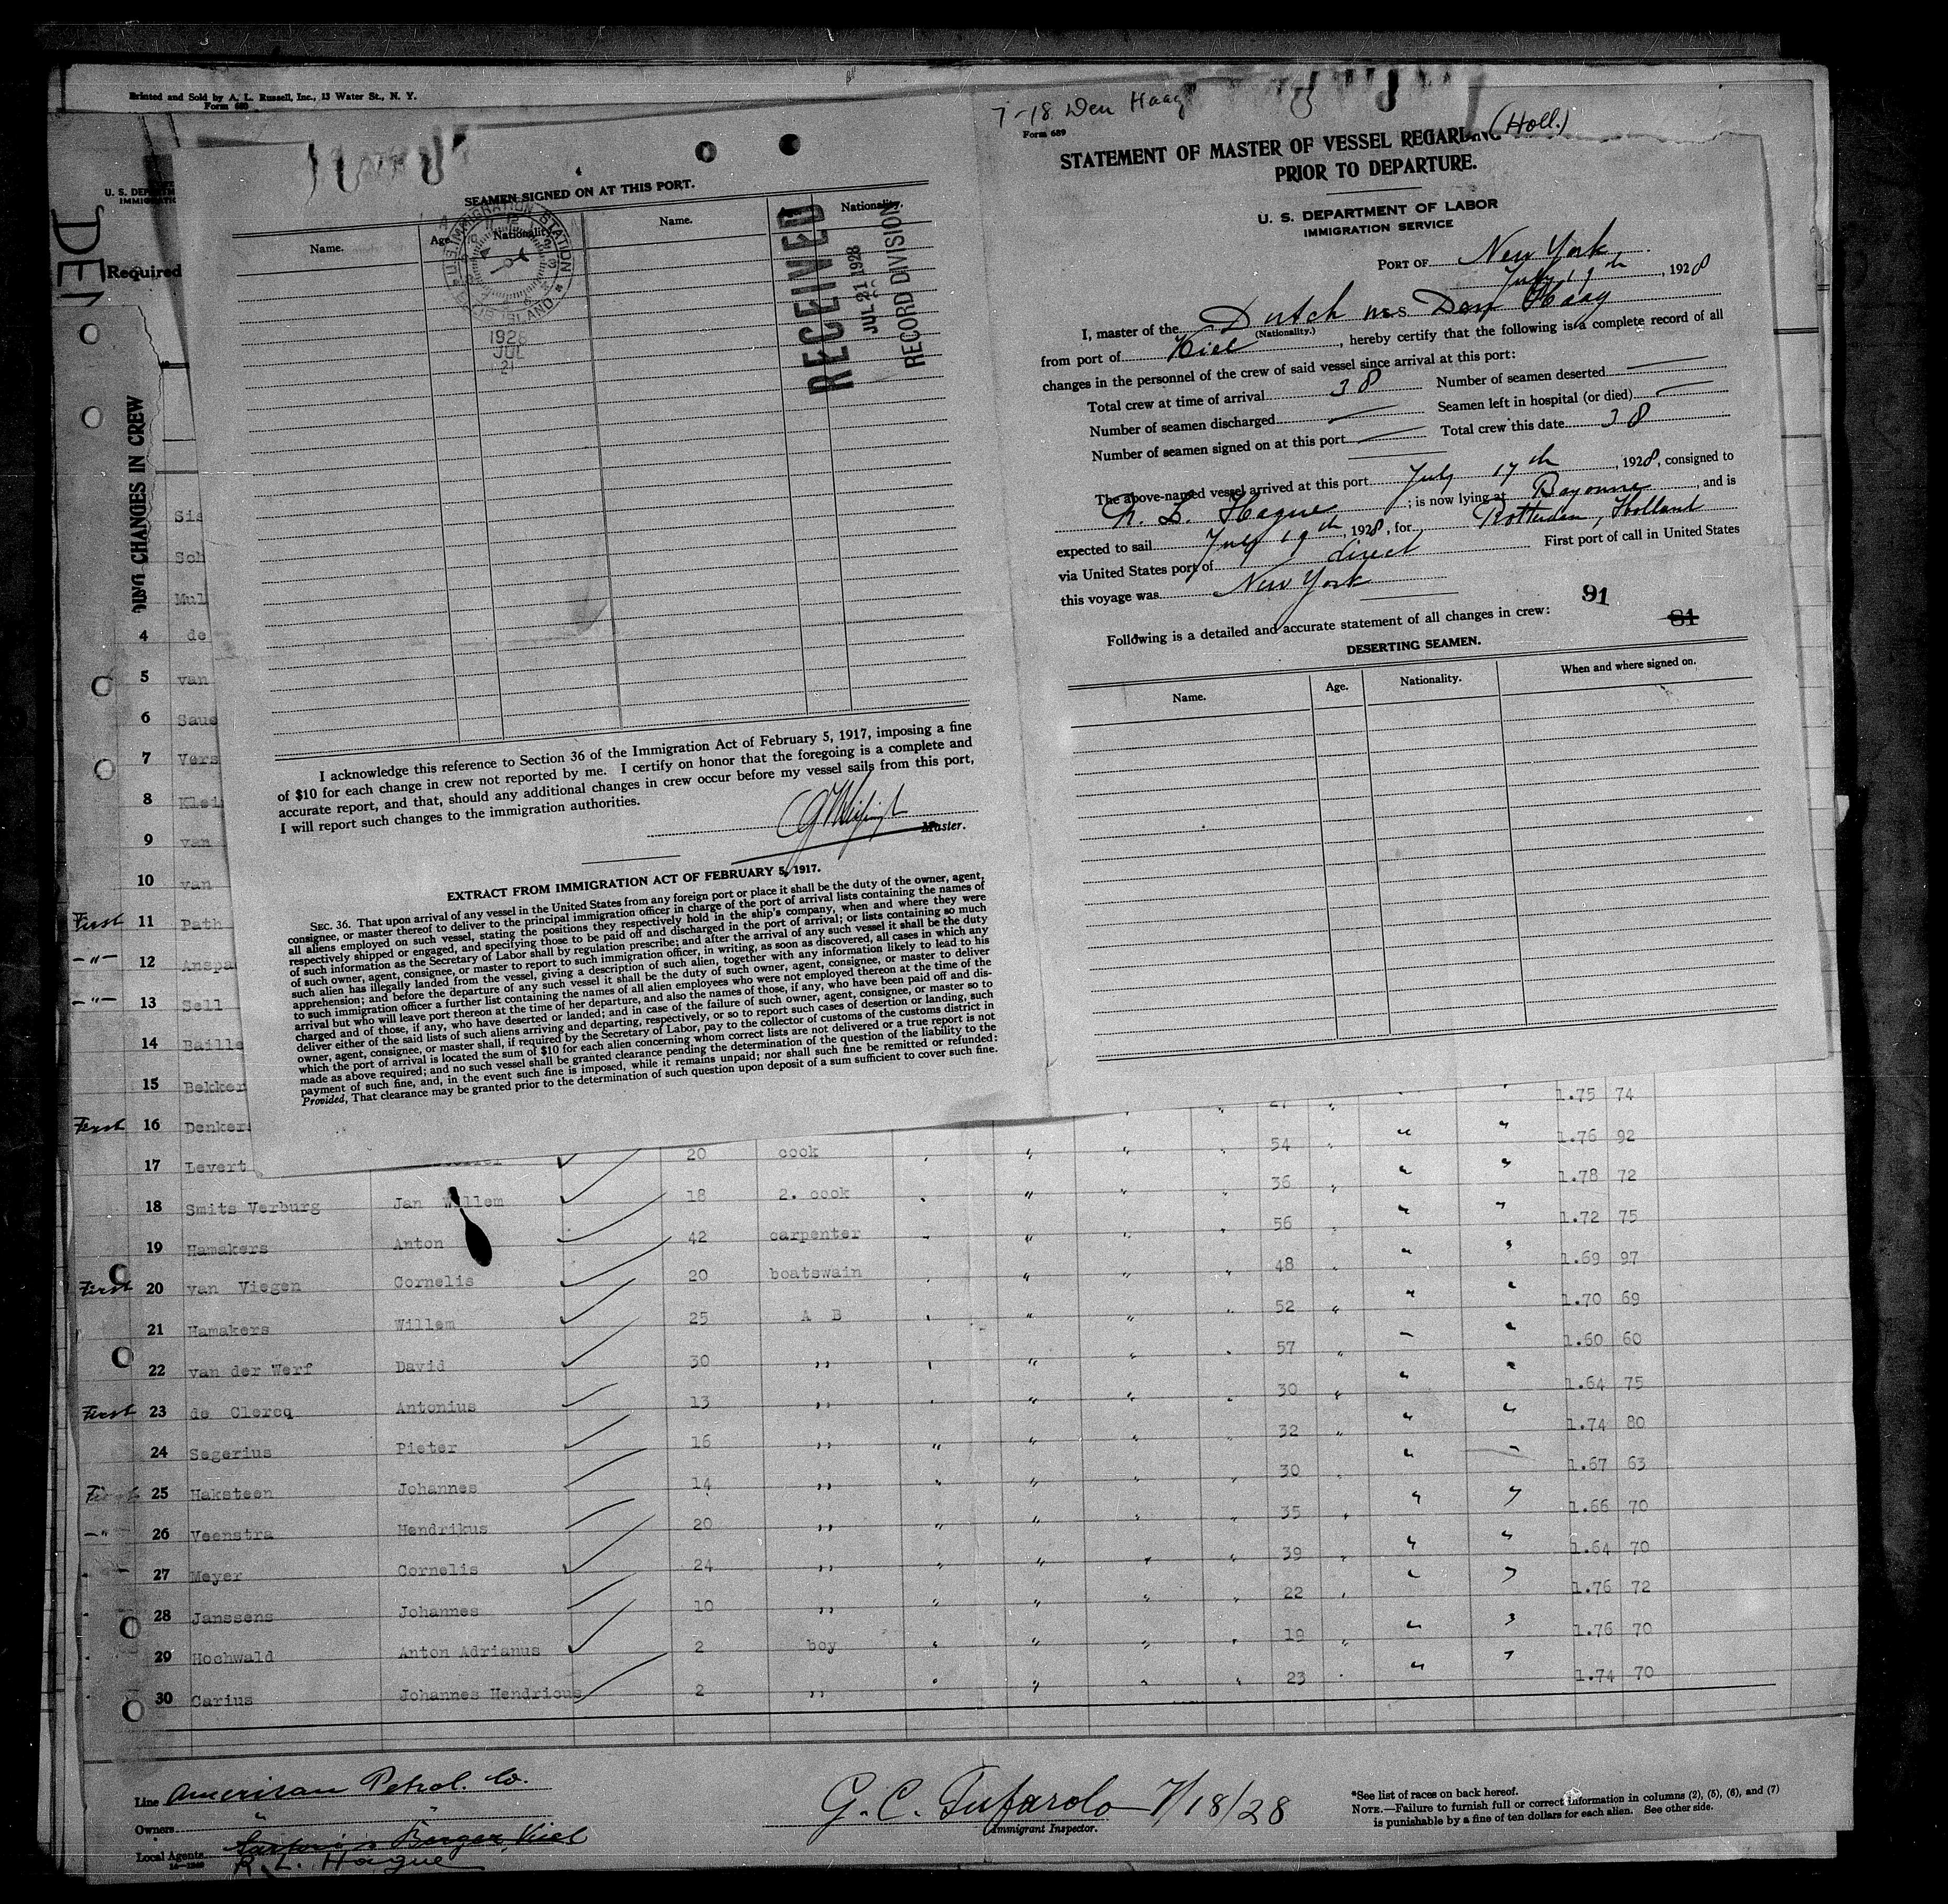 Printed and Sold by A. L. Russell, Inc., 13 Water St., N. Y.
Form 680
U. S. DEP
IMMIGRATIC
DEN
Required
DING CHANGES IN CREW
SEAMEN SIGNED ON AT THIS PORT.
Name. Age. Nationality. Name. Nationality.
U. S. IMMIGRATION STATION
ELLIS ISLAND
1928
JUL
21
RECEIVED
JUL 21 1928
RECORD DIVISION
I acknowledge this reference to Section 36 of the Immigration Act of February 5, 1917, imposing a fine
of $10 for each change in crew not reported by me. I certify on honor that the foregoing is a complete and
accurate report, and that, should any additional changes in crew occur before my vessel sails from this port,
I will report such changes to the immigration authorities.
Master.
EXTRACT FROM IMMIGRATION ACT OF FEBRUARY 5, 1917.
SEC. 36. That upon arrival of any vessel in the United States from any foreign port or place it shall be the duty of the owner, agent,
consignee, or master thereof to deliver to the principal immigration officer in charge of the port of arrival lists containing the names of
all aliens employed on such vessel, stating the positions they respectively hold in the ship's company, when and where they were
respectively shipped or engaged, and specifying those to be paid off and discharged in the port of arrival; or lists containing so much
of such information as the Secretary of Labor shall by regulation prescribe; and after the arrival of any such vessel it shall be the duty
of such owner, agent, consignee, or master to report to such immigration officer, in writing, as soon as discovered, all cases in which any
such alien has illegally landed from the vessel, giving a description of such alien, together with any information likely to lead to his
apprehension; and before the departure of any such vessel it shall be the duty of such owner, agent, consignee, or master to deliver
to such immigration officer a further list containing the names of all alien employees who were not employed thereon at the time of the
arrival but who will leave port thereon at the time of her departure, and also the names of those, if any, who have been paid off and dis-
charged and of those, if any, who have deserted or landed; and in case of the failure of such owner, agent, consignee, or master so to
deliver either of the said lists of such aliens arriving and departing, respectively, or so to report such cases of desertion or landing, such
owner, agent, consignee, or master shall, if required by the Secretary of Labor, pay to the collector of customs of the customs district in
which the port of arrival is located the sum of $10 for each alien concerning whom correct lists are not delivered or a true report is not
made as above required; and no such vessel shall be granted clearance pending the determination of the question of the liability to the
payment of such fine, and, in the event such fine is imposed, while it remains unpaid; nor shall such fine be remitted or refunded:
Provided, That clearance may be granted prior to the determination of such question upon deposit of a sum sufficient to cover such fine.
7-18 Den Haag (Holl.)
Form 689
STATEMENT OF MASTER OF VESSEL REGARDING
PRIOR TO DEPARTURE.
U. S. DEPARTMENT OF LABOR
IMMIGRATION SERVICE
PORT OF New York
July 19th, 1928
I, master of the Dutch M.S Den Haag
(Nationality.)
from port of Kiel, hereby certify that the following is a complete record of all
changes in the personnel of the crew of said vessel since arrival at this port:
Total crew at time of arrival 38 Number of seamen deserted —
Number of seamen discharged — Seamen left in hospital (or died) —
Number of seamen signed on at this port — Total crew this date 38
The above-named vessel arrived at this port July 17th, 1928, consigned to
R. L. Hague; is now lying at Bayonne, and is
expected to sail July 19th, 1928, for Rotterdam, Holland
via United States port of direct First port of call in United States
this voyage was New York
91
81
Following is a detailed and accurate statement of all changes in crew:
DESERTING SEAMEN.
Name. Age. Nationality. When and where signed on.
Sis
Sch
Mul
4 de
5 van
6 Saue
7 Vers
8 Klei
9 van
10 van
First 11 Path
-"- 12 Anspa
-"- 13 Sell
14 Baille
15 Bekker
First 16 Denkers 27 1.75 74
17 Levert 20 cook " " " 54 " " " 1.76 92
18 Smits Verburg Jan Willem 18 2. cook " " " 36 " " " 1.78 72
19 Hamakers Anton 42 carpenter " " " 56 " " " 1.72 75
First 20 van Viegen Cornelis 20 boatswain " " " 48 " " " 1.69 97
21 Hamakers Willem 25 A B " " " 52 " " " 1.70 69
22 van der Werf David 30 ,, " " " 57 " " " 1.60 60
First 23 de Clercq Antonius 13 ,, " " " 30 " " " 1.64 75
24 Segerius Pieter 16 ,, " " " 32 " " " 1.74 80
First 25 Haksteen Johannes 14 ,, " " " 30 " " " 1.67 63
-"- 26 Veenstra Hendrikus 20 ,, " " " 35 " " " 1.66 70
27 Meyer Cornelis 24 ,, " " " 39 " " " 1.64 70
28 Janssens Johannes 10 ,, " " " 22 " " " 1.76 72
29 Hochwald Anton Adrianus 2 boy " " " 19 " " " 1.76 70
30 Carius Johannes Hendricus 2 ,, " " " 23 " " " 1.74 70
Line American Petrol. Co.
Owners " "
Local Agents Sartori & Berger, Kiel
R. L. Hague
G. C. Tufarolo 7/18/28
Immigrant Inspector.
*See list of races on back hereof.
NOTE.—Failure to furnish full or correct information in columns (2), (5), (6), and (7)
is punishable by a fine of ten dollars for each alien. See other side.